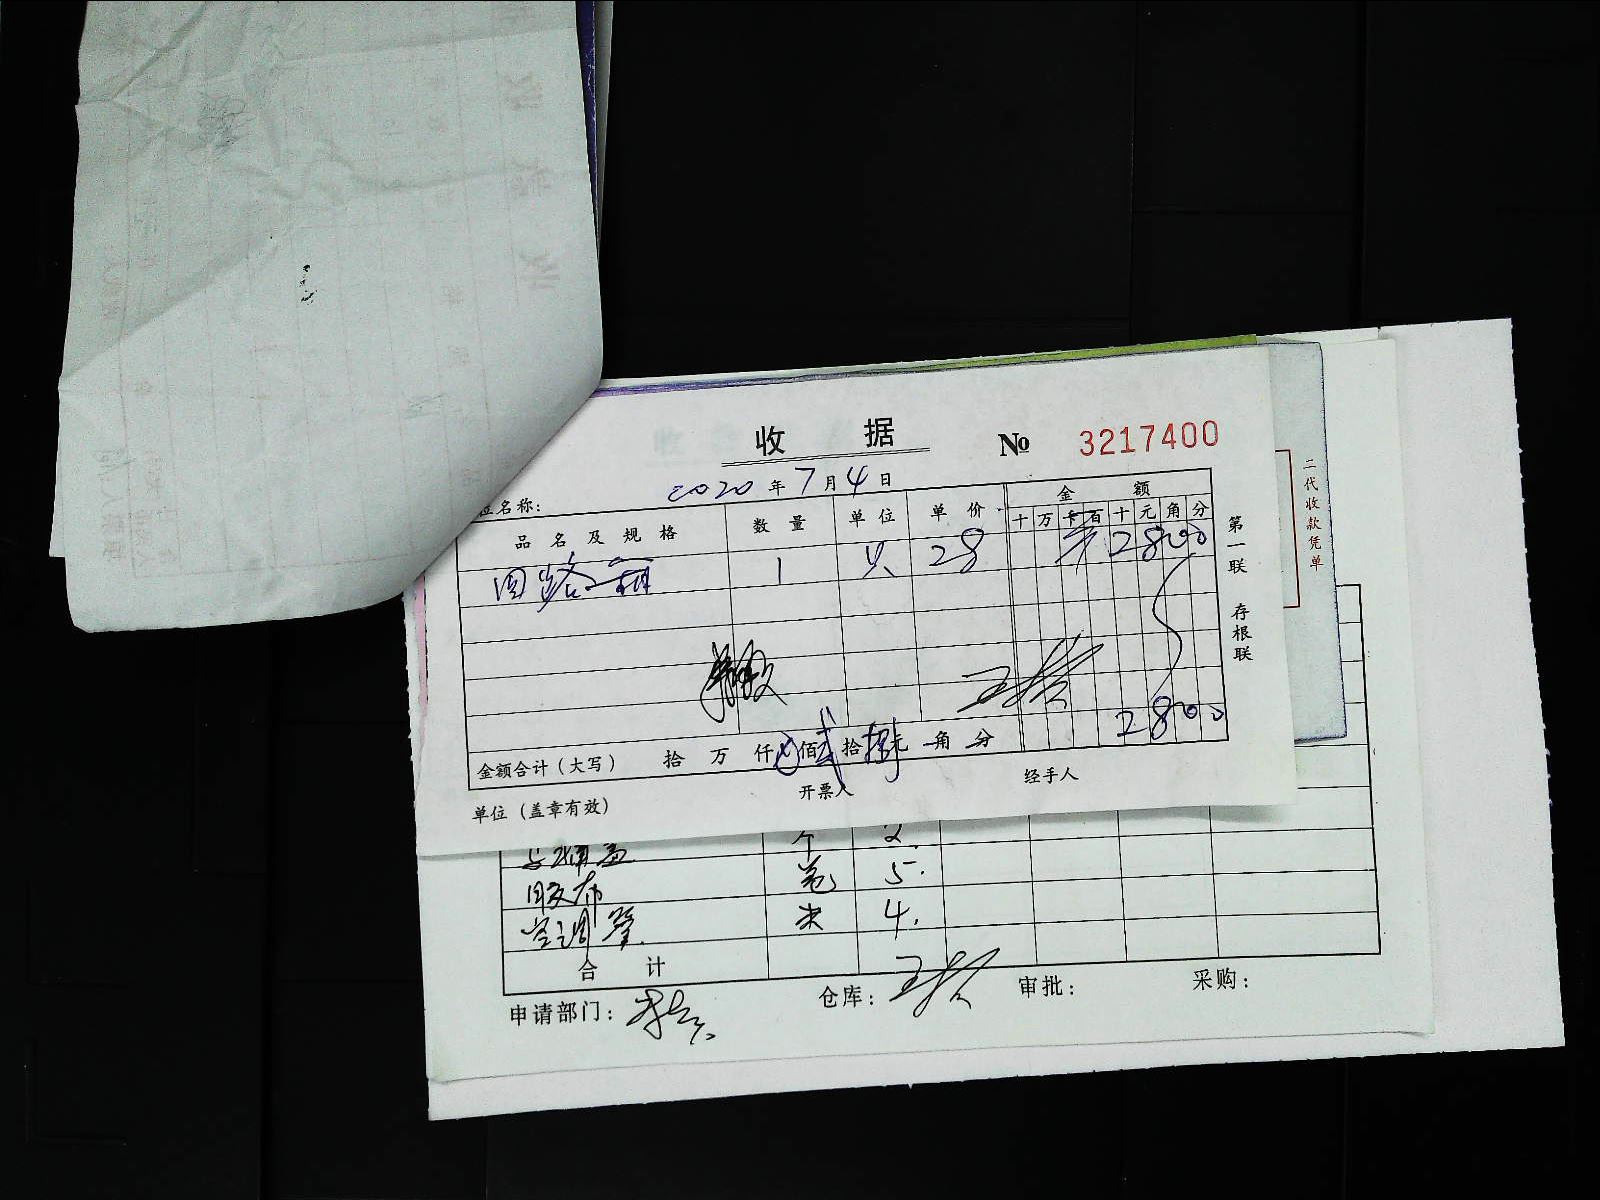 收 据 № 3217400
2020年7月4日
位名称:
品名及规格 数量 单位 单价 金额
十万千百十元角分
1 只 28 2800
2800
金额合计(大写) 拾万仟佰贰拾捌元角分
单位(盖章有效) 开票人 经手人
第一联 存根联
二代收款凭单
个 2.
胶布 卷 5.
空调管. 米 4.
合计
申请部门: 仓库: 审批: 采购: